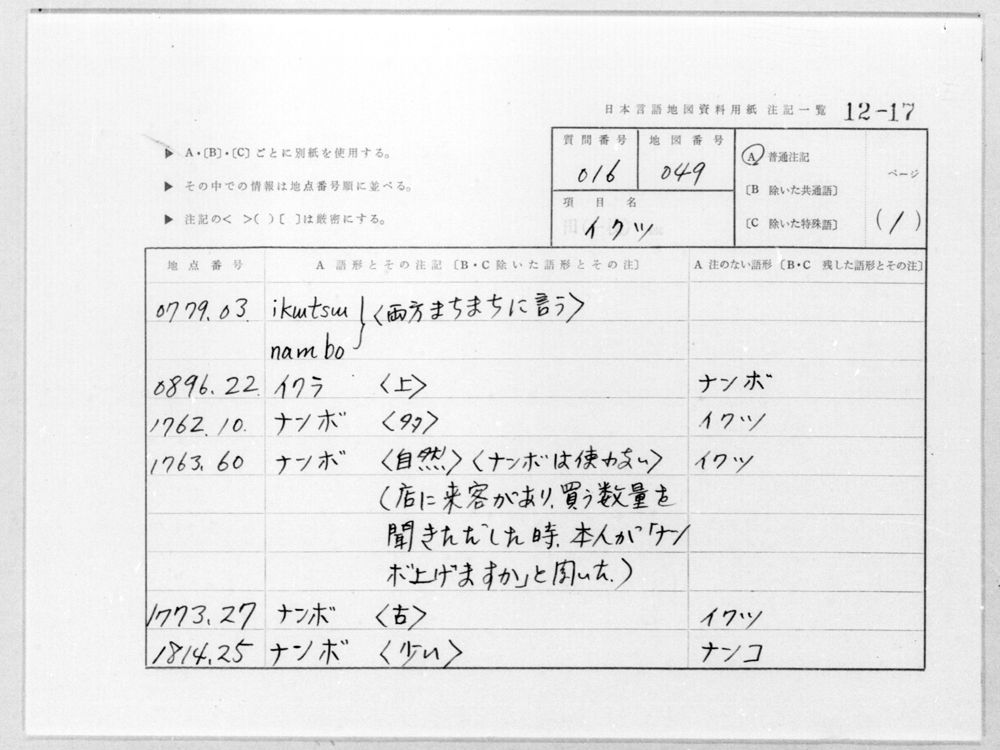 日本言語地図資料用紙 注記一覧 12-17
▶ A・〔B〕・〔C〕ごとに別紙を使用する。
▶ その中での情報は地点番号順に並べる。
▶ 注記の< >( )〔 〕は厳密にする。
質問番号 地図番号
016 049
項目名
イクツ
A 普通注記
〔B 除いた共通語〕
〔C 除いた特殊語〕
ページ
(1)
地点番号 A 語形とその注記〔B・C除いた語形とその注〕 A 注のない語形〔B・C 残した語形とその注〕
0779.03. ikɯtsɯ 〈両方まちまちに言う〉
nambo
0896.22. イクラ 〈上〉 ナンボ
1762.10. ナンボ 〈多〉 イクツ
1763.60 ナンボ 〈自然〉〈ナンボは使わない〉 イクツ
(店に来客があり、買う数量を
聞きただした時、本人が「ナン
ボ上げますか」と聞いた。)
1773.27 ナンボ 〈古〉 イクツ
1814.25 ナンボ 〈少い〉 ナンコ